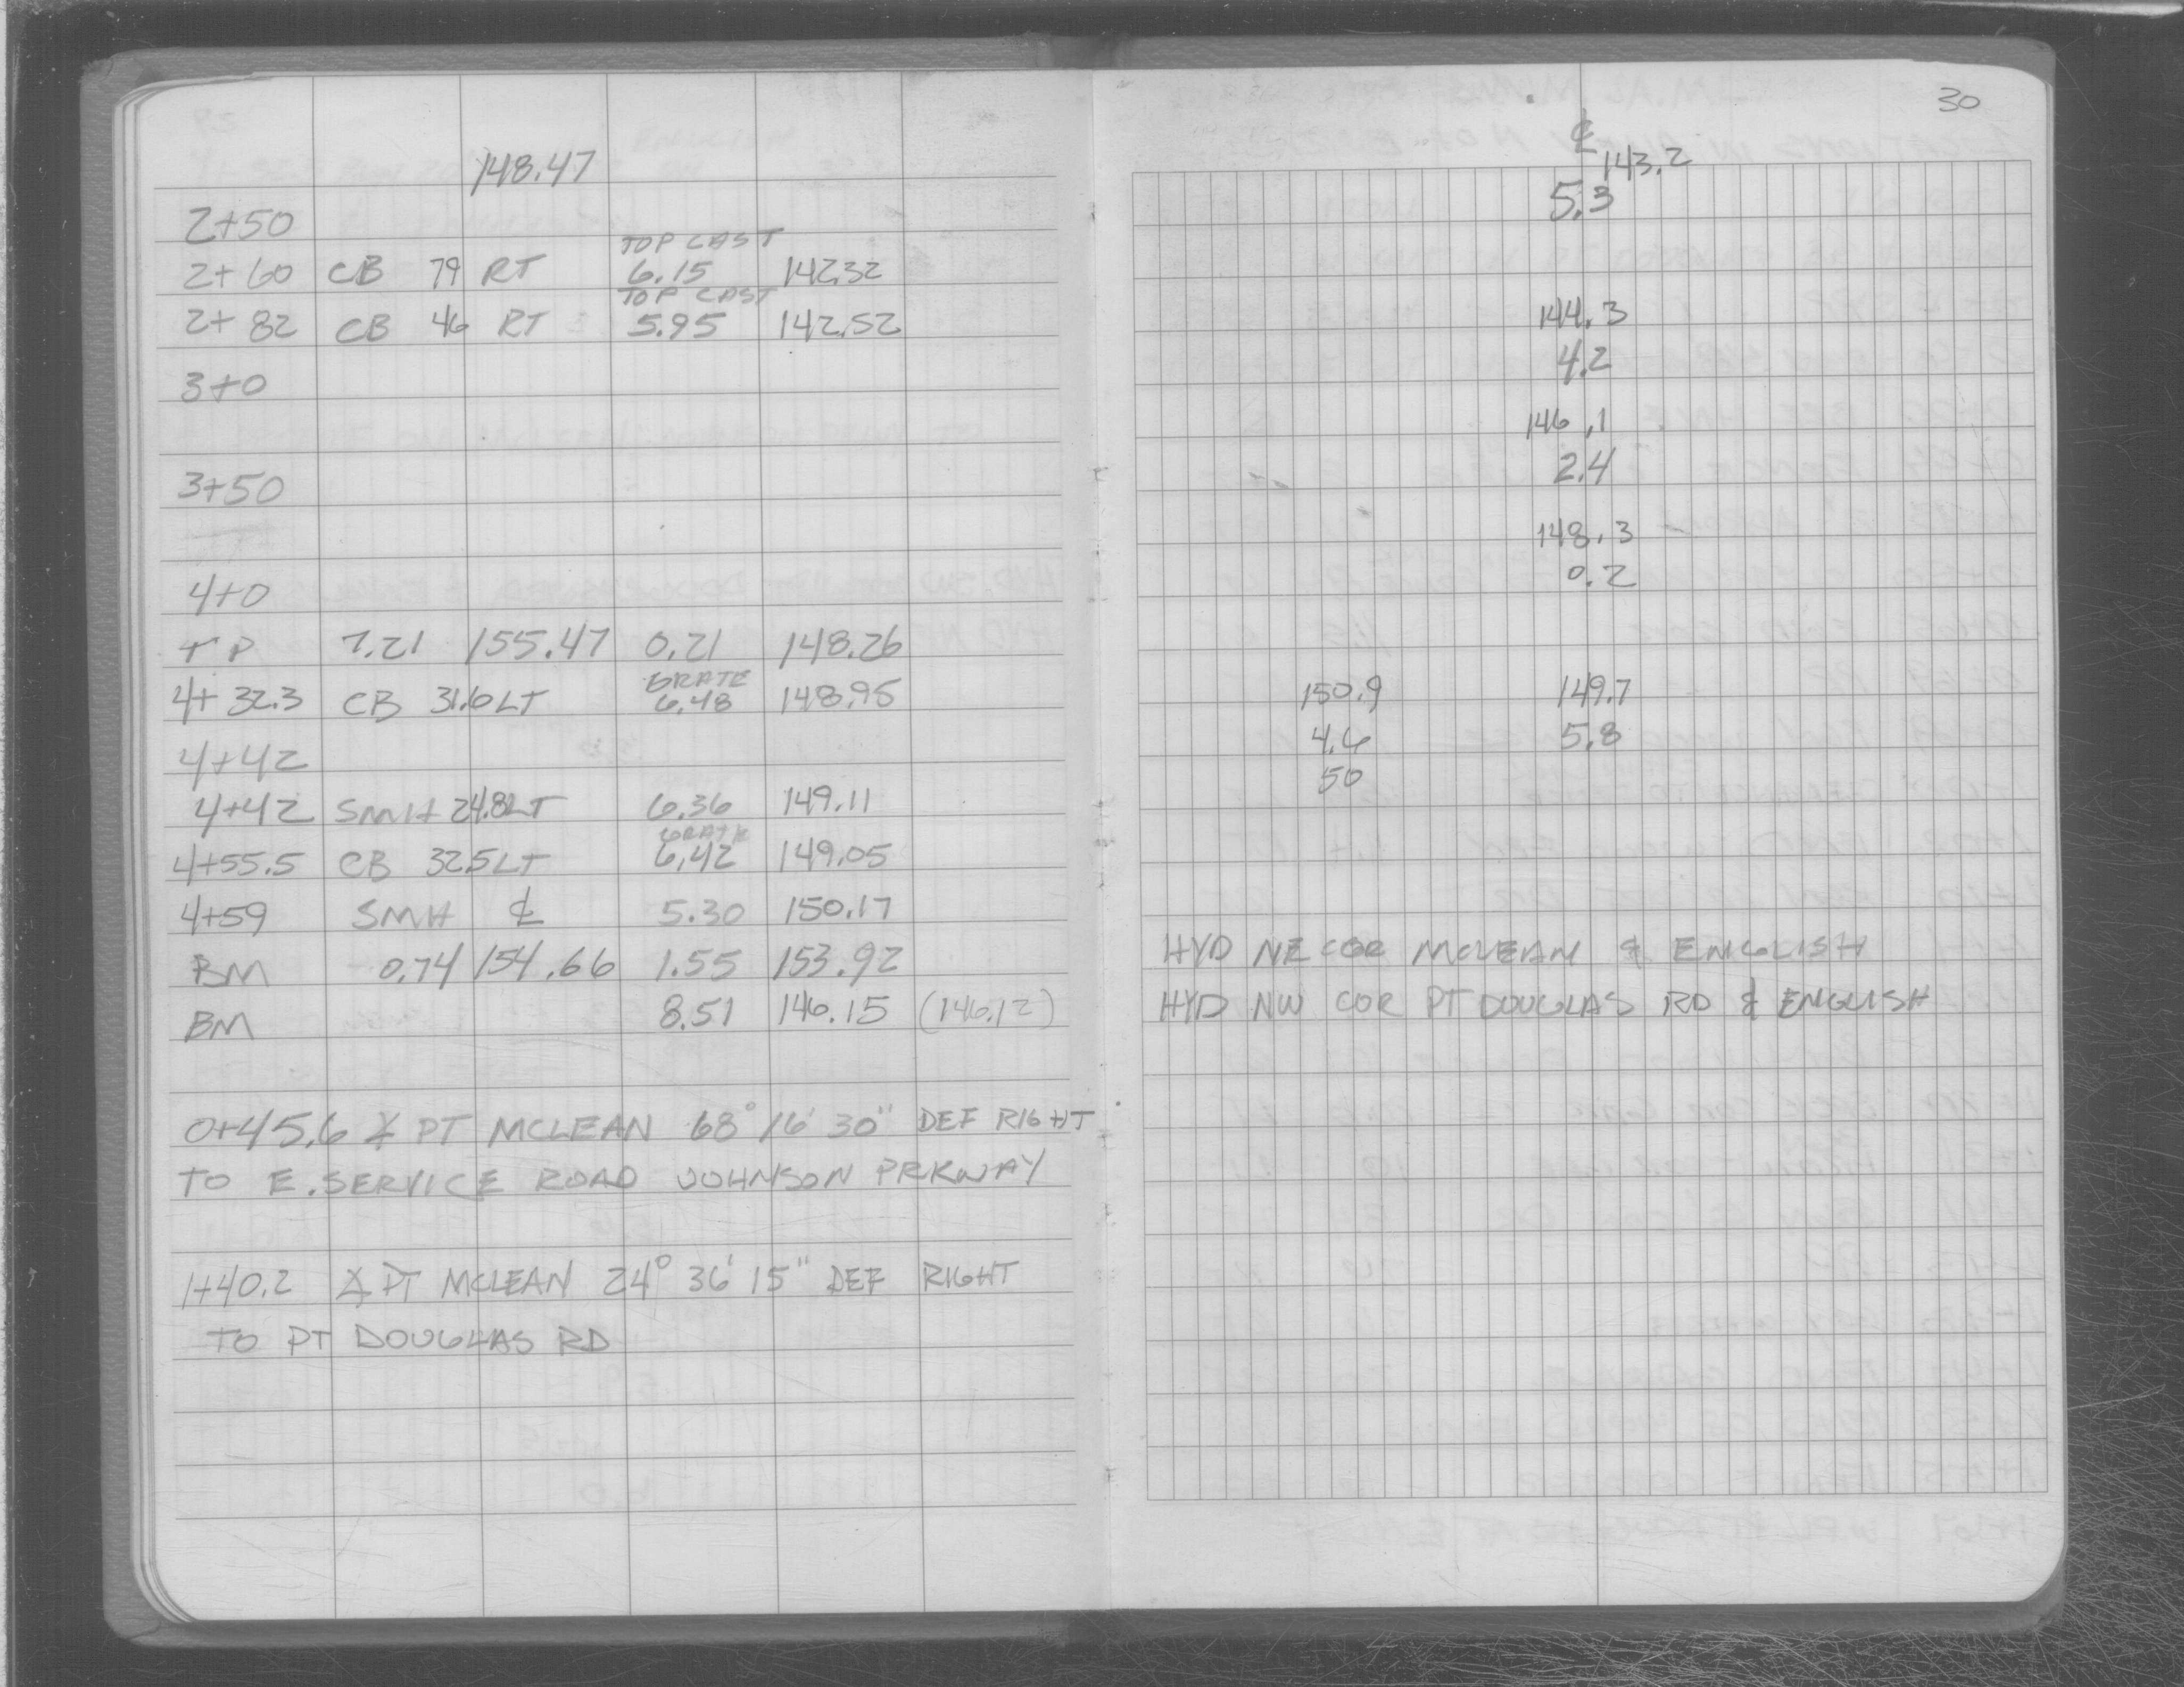 148.47
2+50
TOP CAST
2+60 CB 79 RT 6.15 142.32
TOP CAST
2+82 CB 46 RT 5.95 142.52
3+0
3+50
4+0
TP 7.21 155.47 0.21 148.26
GRATE
4+32.3 CB 31.0 LT 6.48 148.95
4+42
4+42 SMH 24.8 LT 6.36 149.11
GRATE
4+55.5 CB 32.5 LT 6.42 149.05
4+59 SMH ℄ 5.30 150.17
BM 0.74 154.66 1.55 153.92
BM 8.51 146.15 (146.12)
0+45.6 ∡ PT MCLEAN 68° 16' 30" DEF RIGHT
TO E. SERVICE ROAD JOHNSON PRKWAY
1+40.2 ∡ PT MCLEAN 24° 36' 15" DEF RIGHT
TO PT DOUGLAS RD
30
℄
143.2
5.3
144.3
4.2
146.1
2.4
148.3
0.2
150.9 149.7
4.6 5.8
50
HYD NE COR MCLEAN & ENGLISH
HYD NW COR PT DOUGLAS RD & ENGLISH